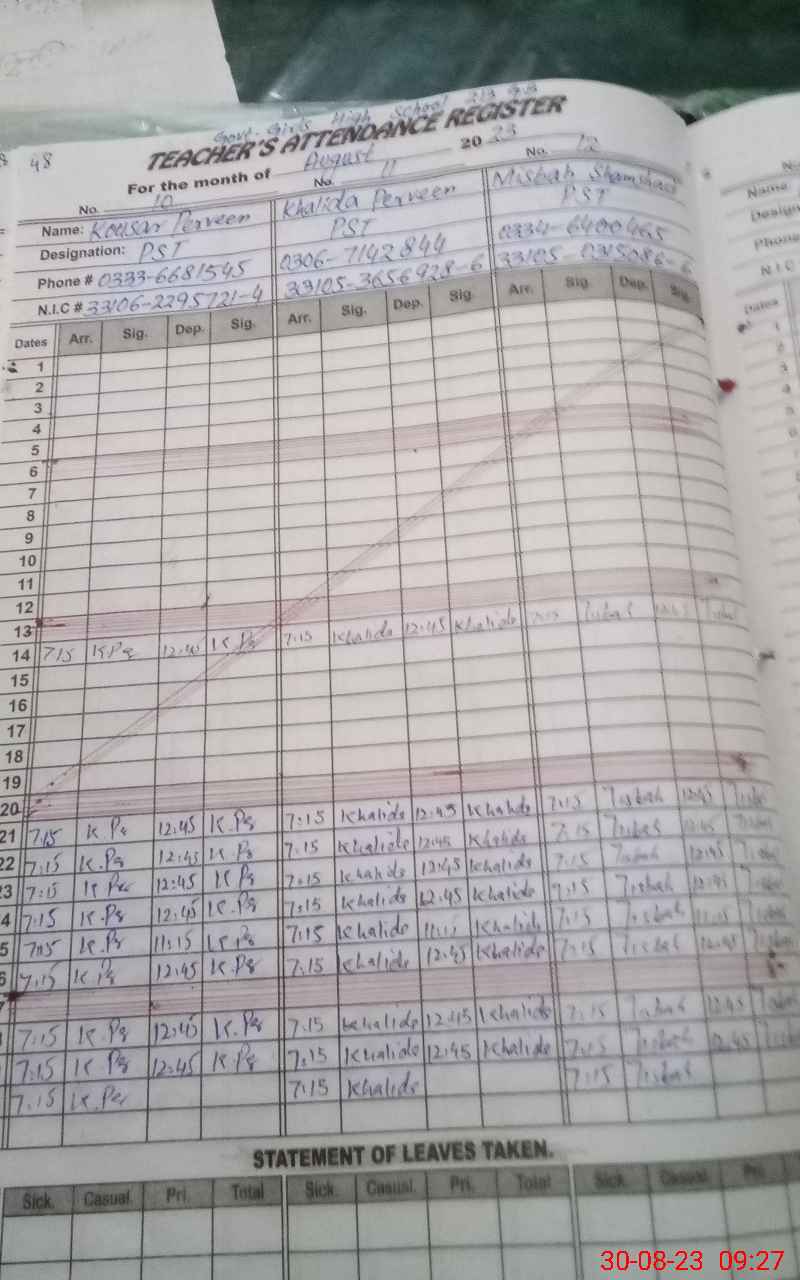 48
Govt. Girls High School 213 GB
TEACHER'S ATTENDANCE REGISTER
For the month of August 2023
No. 10 No. 11 No. 12
Name: Kousar Perveen Khalida Perveen Misbah Shamshad
Designation: PST PST PST
Phone # 0333-6681545 0306-7142844 0334-6400465
N.I.C # 33106-2295721-4 33105-3656928-6
Dates Arr. Sig. Dep. Sig. Arr. Sig. Dep. Sig. Arr. Sig. Dep. Sig.
1
2
3
4
5
6
7
8
9
10
11
12
13
14 7:15 K.Pe 12:45 K.Pe 7:15 Khalida 12:45 Khalida 7:15
15
16
17
18
19
20
21 7:15 K.Pe 12:45 K.Pe 7:15 Khalida 12:45 Khalida 7:15 12:45
22 7:15 K.Pe 12:45 K.Pe 7:15 Khalida 12:45 Khalida 7:15 12:45
23 7:15 K Per 12:45 K.Pe 7:15 Khalida 12:45 Khalida 7:15 12:45
4 7:15 K.Pe 12:45 K.Pe 7:15 Khalida 12:45 Khalida 7:15 12:45
5 7:15 K.Pe 11:15 K.Pe 7:15 Khalida 11:15 Khalida 7:15 11:15
6 7:15 K.Pe 12:45 K.Pe 7:15 Khalida 12:45 Khalida 7:15 12:45
7
7:15 K.Pe 12:45 K.Pe 7:15 Khalida 12:45 Khalida 7:15 12:45
7:15 K.Pe 12:45 K.Pe 7:15 Khalida 12:45 Khalida 7:15 12:45
7:15 K.Per 7:15 Khalida 7:15
STATEMENT OF LEAVES TAKEN.
Sick. Casual. Pri. Total Sick. Casual. Pri. Total Sick. Casual. Pri.
Name
Phone
N.I.C
Dates
30-08-23 09:27